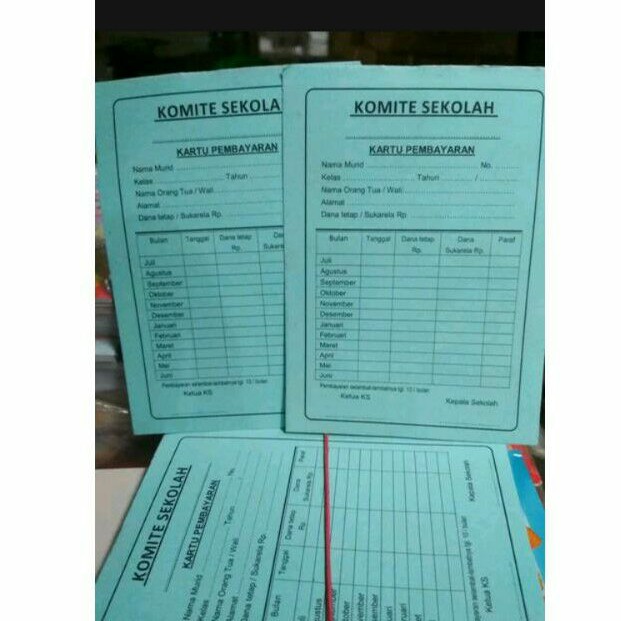 KOMITE SEKOLA
KARTU PEMBAYARAN
Nama Murid
Kelas Tahun
Nama Orang Tua / Wali
Alamat
Dana tetap / Sukarela Rp.
Bulan Tanggal Dana tetap Rp.
Juli
Agustus
September
Oktober
November
Desember
Januari
Februari
Maret
April
Mei
Juni
Pembayaran selambat-lambatnya tgl. 10 / bulan
Ketua KS
KOMITE SEKOLAH
KARTU PEMBAYARAN
Nama Murid No.
Kelas Tahun /
Nama Orang Tua / Wali
Alamat
Dana tetap / Sukarela Rp.
Bulan Tanggal Dana tetap Rp. Dana Sukarela Rp. Paraf
Juli
Agustus
September
Oktober
November
Desember
Januari
Februari
Maret
April
Mei
Juni
Pembayaran selambat-lambatnya tgl. 10 / bulan
Ketua KS Kepala Sekolah
KOMITE SEKOLAH
KARTU PEMBAYARAN
Nama Murid No.
Kelas Tahun
Nama Orang Tua / Wali
Alamat
Dana tetap / Sukarela Rp.
Bulan Tanggal Dana tetap Rp. Dana Sukarela Rp. Paraf
Ketua KS Kepala Sekolah